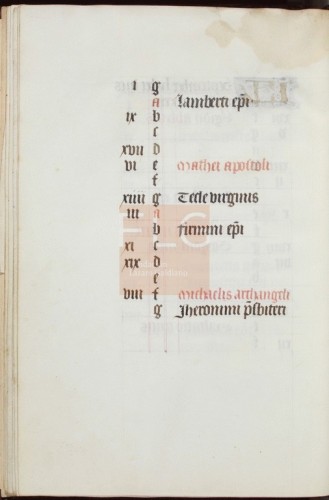 i g
a Lamberti epi
ix b
c
xvii d
vi e Mathei apostoli
f
xiiii g Tecle virginis
iii a
b firmini epi
xi c
xix d
e
viii f Michaelis archangeli
g Jheronimi psbiteri